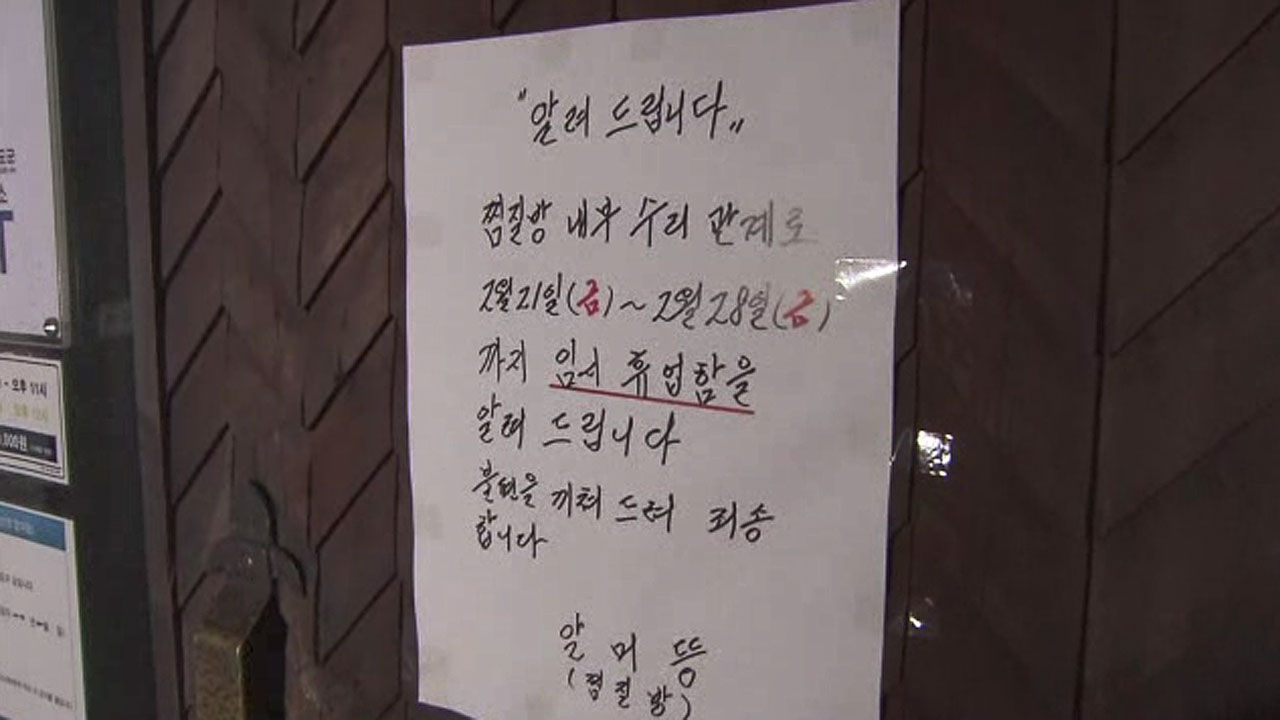 "알려 드립니다"
찜질방 내부 수리 관계로
2월21일(금)~2월28일(금)
까지 임시 휴업함을
알려 드립니다
불편을 끼쳐 드려 죄송
합니다
알머뜽
(찜질방)
~ 오후 11시
,000원